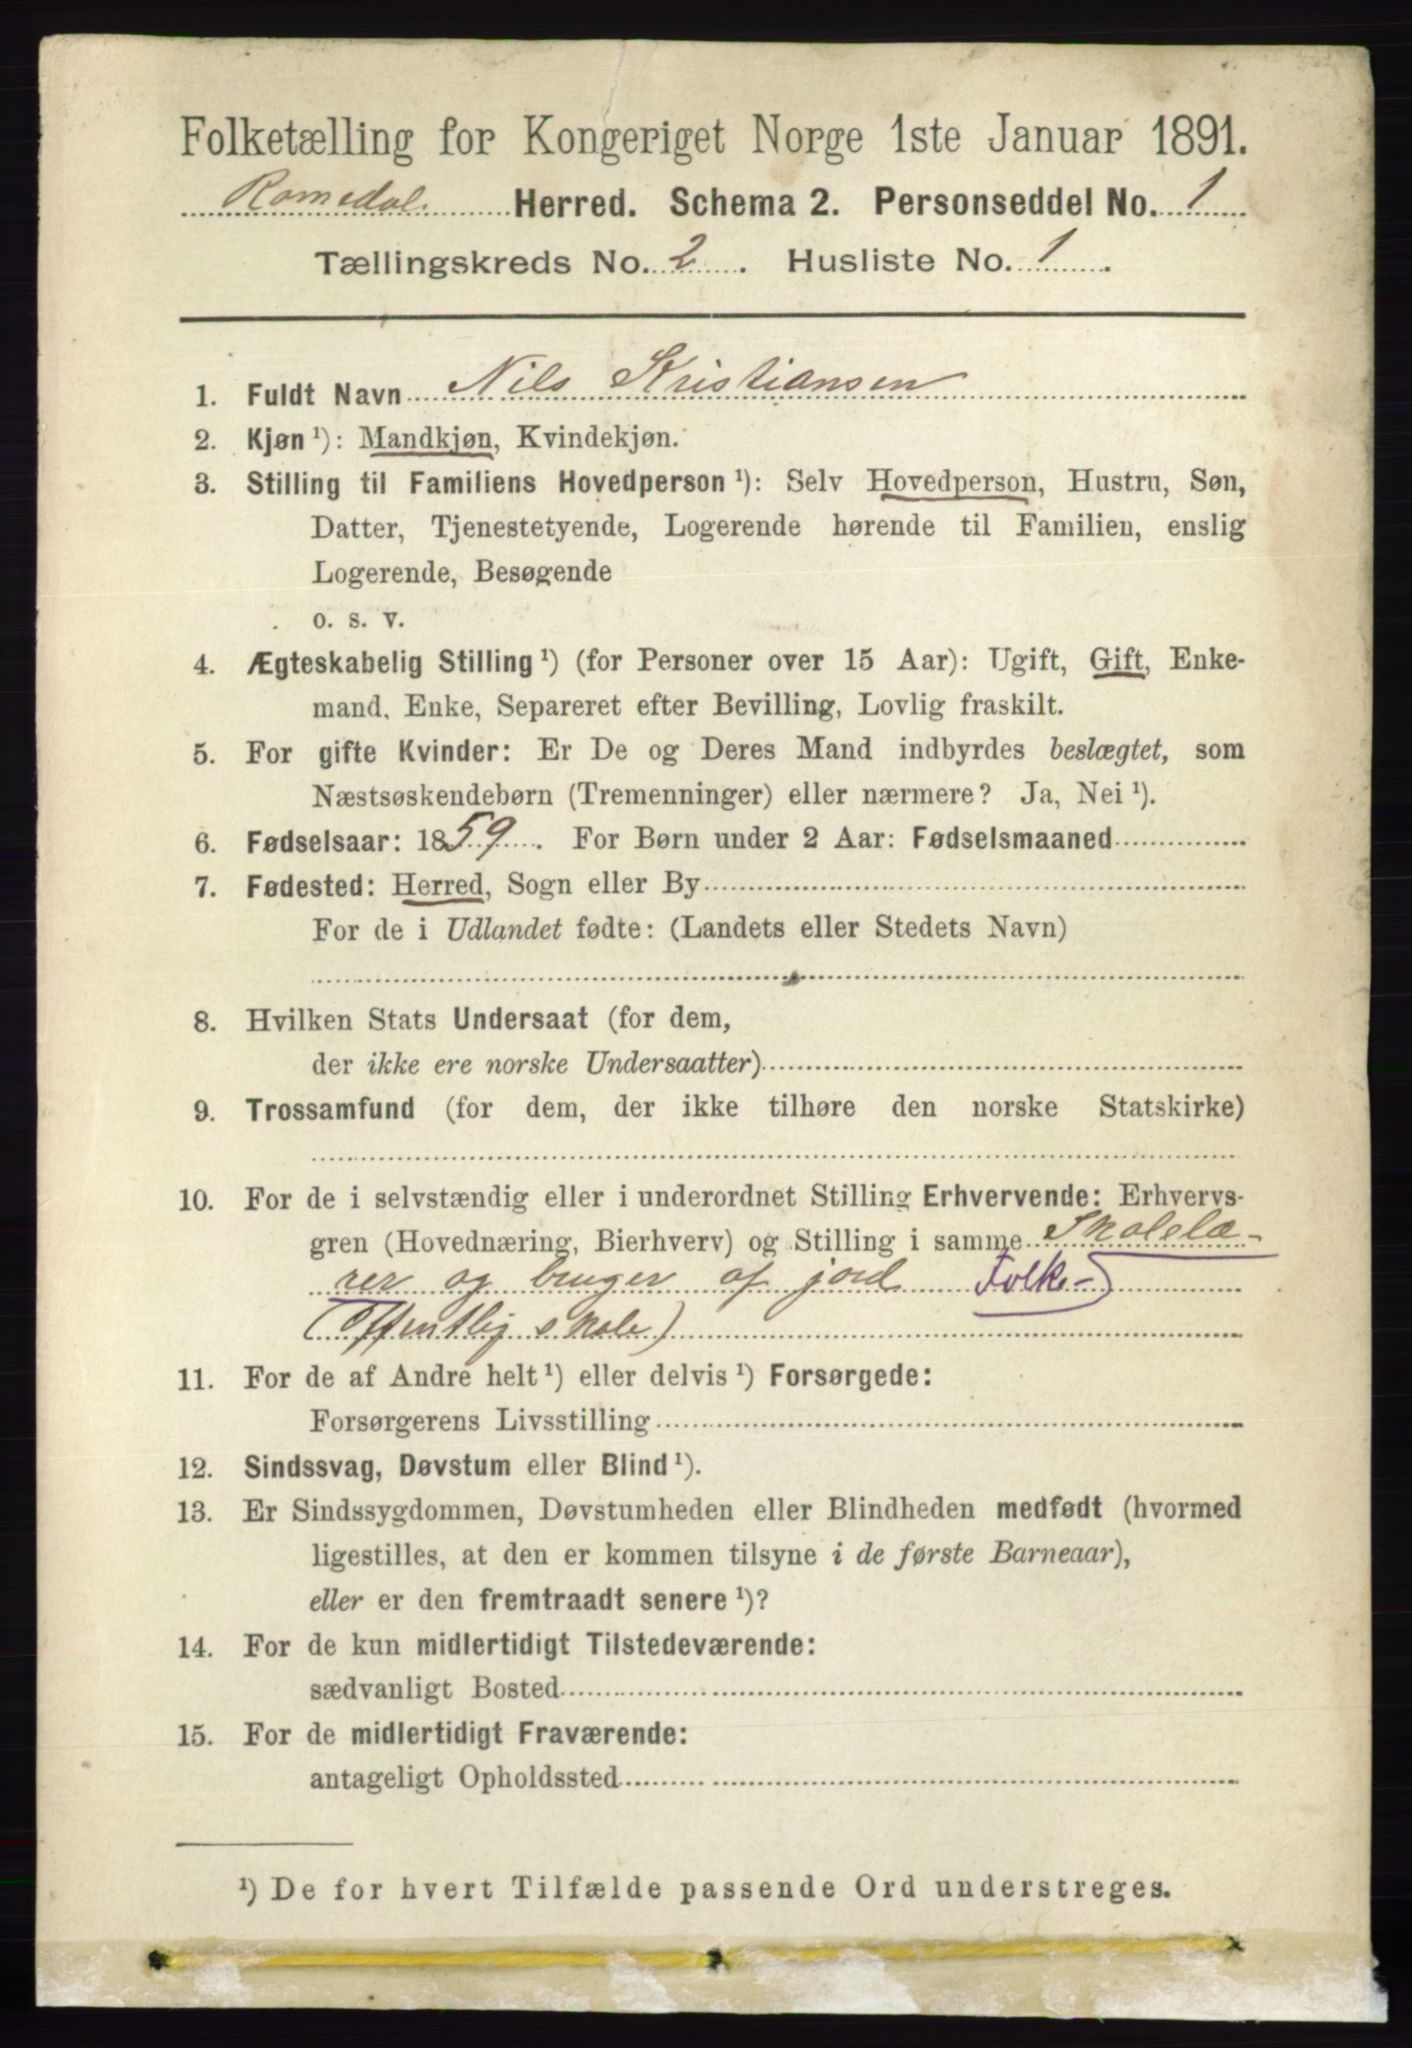 Folketælling for Kongeriget Norge 1ste Januar 1891.
Romedal Herred. Schema 2. Personseddel No. 1
Tællingskreds No. 2. Husliste No. 1.
1. Fuldt Navn Nils Kristiansen
2. Kjøn ¹): Mandkjøn, Kvindekjøn.
3. Stilling til Familiens Hovedperson ¹): Selv Hovedperson, Hustru, Søn,
Datter, Tjenestetyende, Logerende hørende til Familien, enslig
Logerende, Besøgende
o. s. v.
4. Ægteskabelig Stilling ¹) (for Personer over 15 Aar): Ugift, Gift, Enke-
mand, Enke, Separeret efter Bevilling, Lovlig fraskilt.
5. For gifte Kvinder: Er De og Deres Mand indbyrdes beslægtet, som
Næstsøskendebørn (Tremenninger) eller nærmere? Ja, Nei ¹).
6. Fødselsaar: 1859. For Børn under 2 Aar: Fødselsmaaned
7. Fødested: Herred, Sogn eller By
For de i Udlandet fødte: (Landets eller Stedets Navn)
8. Hvilken Stats Undersaat (for dem,
der ikke ere norske Undersaatter)
9. Trossamfund (for dem, der ikke tilhøre den norske Statskirke)
10. For de i selvstændig eller i underordnet Stilling Erhvervende: Erhvervs-
gren (Hovednæring, Bierhverv) og Stilling i samme Skolelæ-
rer og bruger af jord Folke-
(Offentlig skole)
11. For de af Andre helt ¹) eller delvis ¹) Forsørgede:
Forsørgerens Livsstilling
12. Sindssvag, Døvstum eller Blind ¹).
13. Er Sindssygdommen, Døvstumheden eller Blindheden medfødt (hvormed
ligestilles, at den er kommen tilsyne i de første Barneaar),
eller er den fremtraadt senere ¹)?
14. For de kun midlertidigt Tilstedeværende:
sædvanligt Bosted
15. For de midlertidigt Fraværende:
antageligt Opholdssted
¹) De for hvert Tilfælde passende Ord understreges.